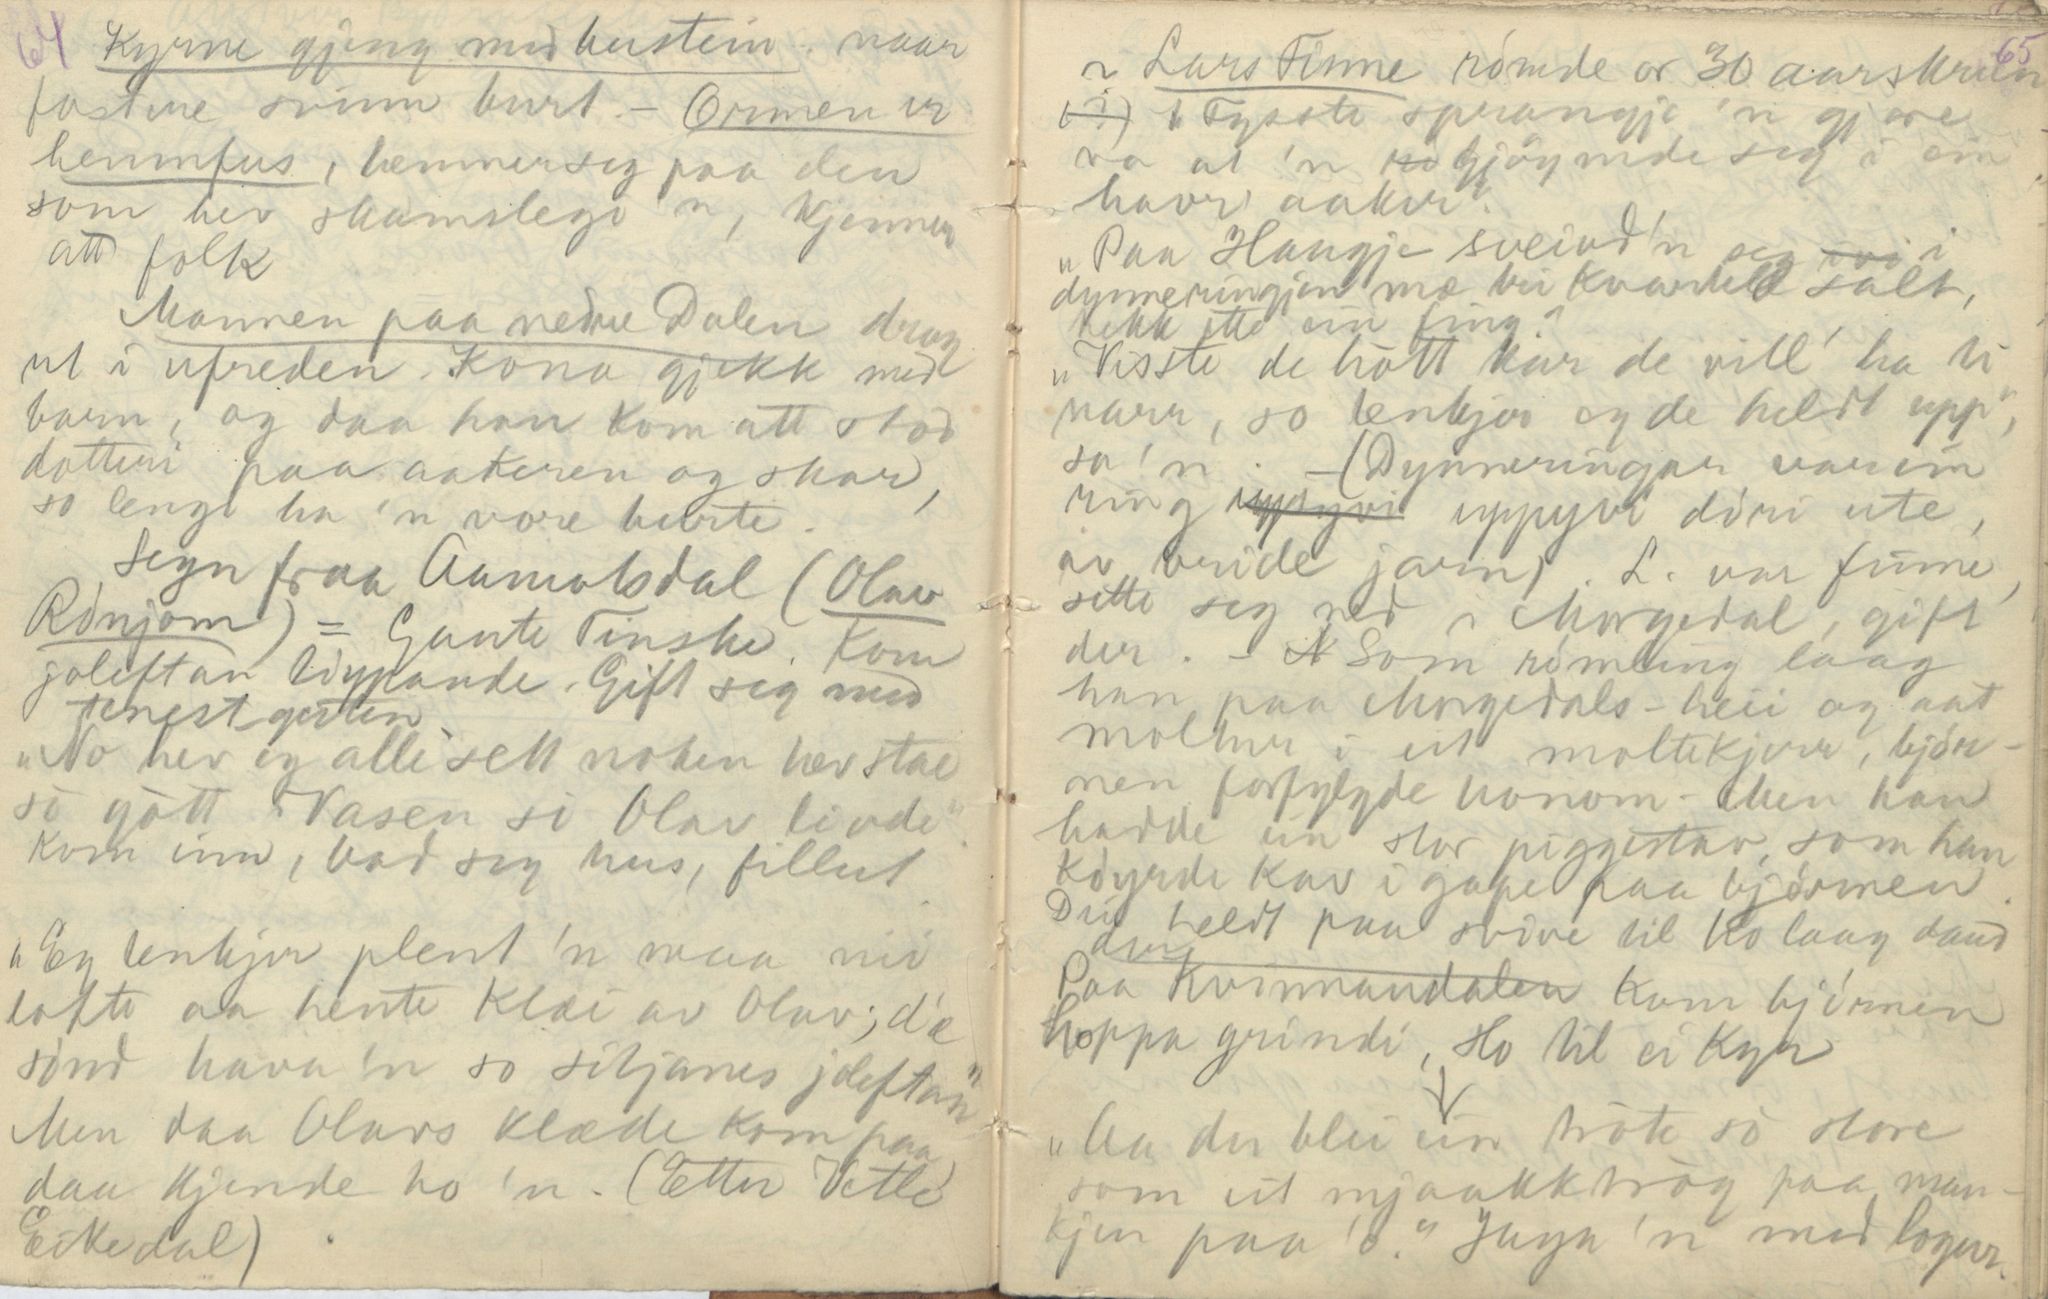 64 Kyrne gjeng med beistein. naar
fostrre svinn burt. – Ormen er
hemnfus, hemner seg paa den
som hev skamslegi'n, kjenner
att folk
Mannen paa nedre Dalen drog
ut i ufreden. Kona gjekk med
barn, og daa han kom att stod
dotteri paa aakeren og skar,
so lengi ha'n vore burte.
Segn fraa Aamotsdal (Olav
Rónjom) = Gaute Tinske. Kom
joleftan loypande. Gift seg med
tenestgjeten
"No hev eg alli sett noken her stae
so gòtt Vasen si Olav livde"
Kom inn, bad seg hus, fillut
"Eg tenkjer plent 'n maa nii
lofte aa hente klæi av Olav; d'æ
sónd hava'n so siljanes joleftan"
Men daa Olavs klæde kom paa
daa kjende ho 'n. (Etter Vetle
Eikedal).
65
Lars Finne rómde or 30 aars krien
i Tysste sprangje 'n gjære
va at 'n gjöymde seg i ein
havr' aaker".
"Paa Haugje sveivd'n seg i
dynneringjen mæ bei kvarteld salt,
kekk itte ein fing."
"Visste de hótt kar de vill' ha ti
narr, so tenkjer eg de heldt upp",
sa 'n. – (Dynneringar var ein
ring uppyvi uppyvi dóri ute,
av vride jarn). L. var finne,
sette seg ned i Morgedal, gift
der. – Som rómling laag
han paa Morgedals-heii og aat
moltur i eit moltekjerr, bjór-
nen forfylgde honom. Men han
hadde ein stor piggestav, som han
kóyrde kav i gape paa bjórnen.
Dei heldt paa svive til ho laag daud
der
Paa Kvinnandalen kom bjórnen
hoppa grindi, slo til ei kyr
"Aa der blei ein tròte so store
som eit mjaakktròg paa man-
kjen paa 'o." Jaga 'n med logur.